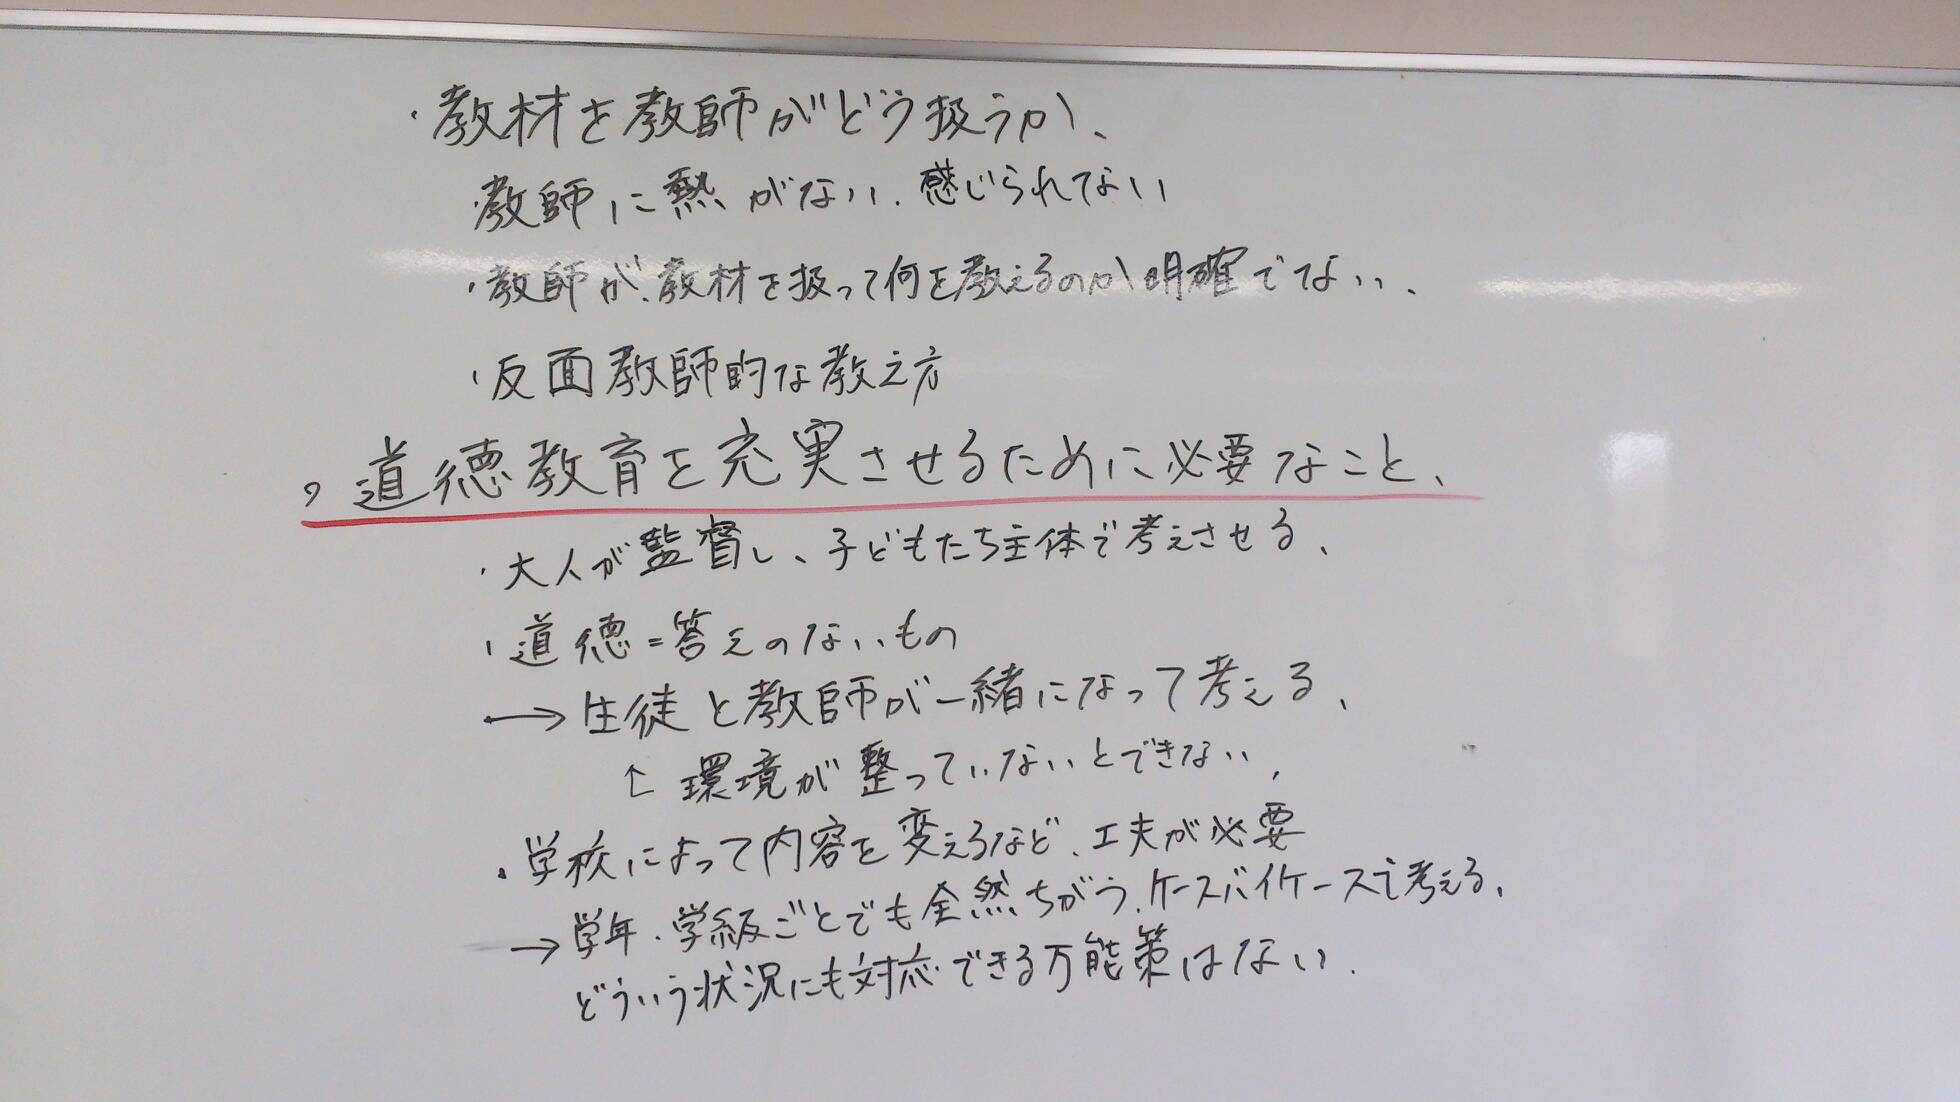 ・教材を教師がどう扱うか、
・教師に熱がない、感じられてない
・教師が、教材を扱って何を教えるのか明確でない、
・反面教師的な教え方
，道徳教育を充実させるために必要なこと、
・大人が監督し、子どもたち主体で考えさせる、
・道徳=答えのないもの
→生徒と教師が一緒になって考える、
↑ 環境が整っていないとできない、
・学校によって内容を変えるなど、工夫が必要
→学年・学級ごとでも全然ちがう、ケースバイケースで考える、
どういう状況にも対応できる万能策はない、